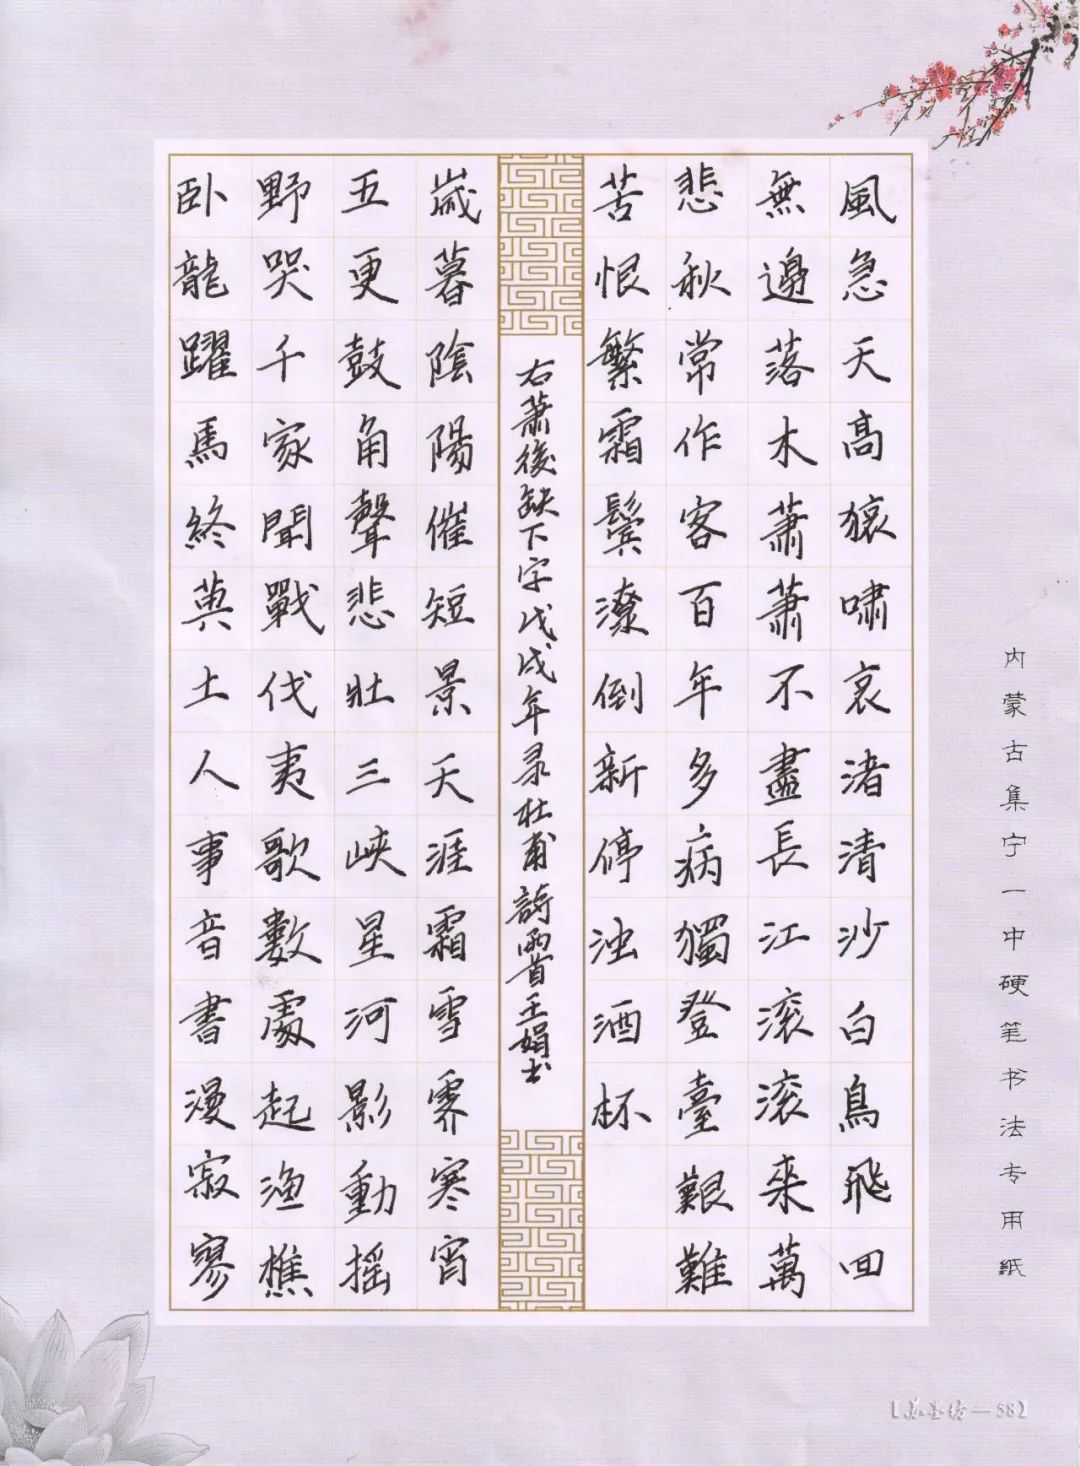 風急天高猿嘯哀渚清沙白鳥飛回
無邊落木蕭蕭不盡長江滚滚來萬
悲秋常作客百年多病獨登臺艱難
苦恨繁霜鬢潦倒新停浊酒杯
右蕭後缺下字戊戌年录杜甫詩两首王娟书
歲暮陰陽催短景天涯霜雪霽寒宵
五更鼓角聲悲壯三峽星河影動摇
野哭千家聞戰伐夷歌數處起渔樵
卧龍躍馬終黄土人事音書漫寂寥
内蒙古集宁一中硬笔书法专用紙
58